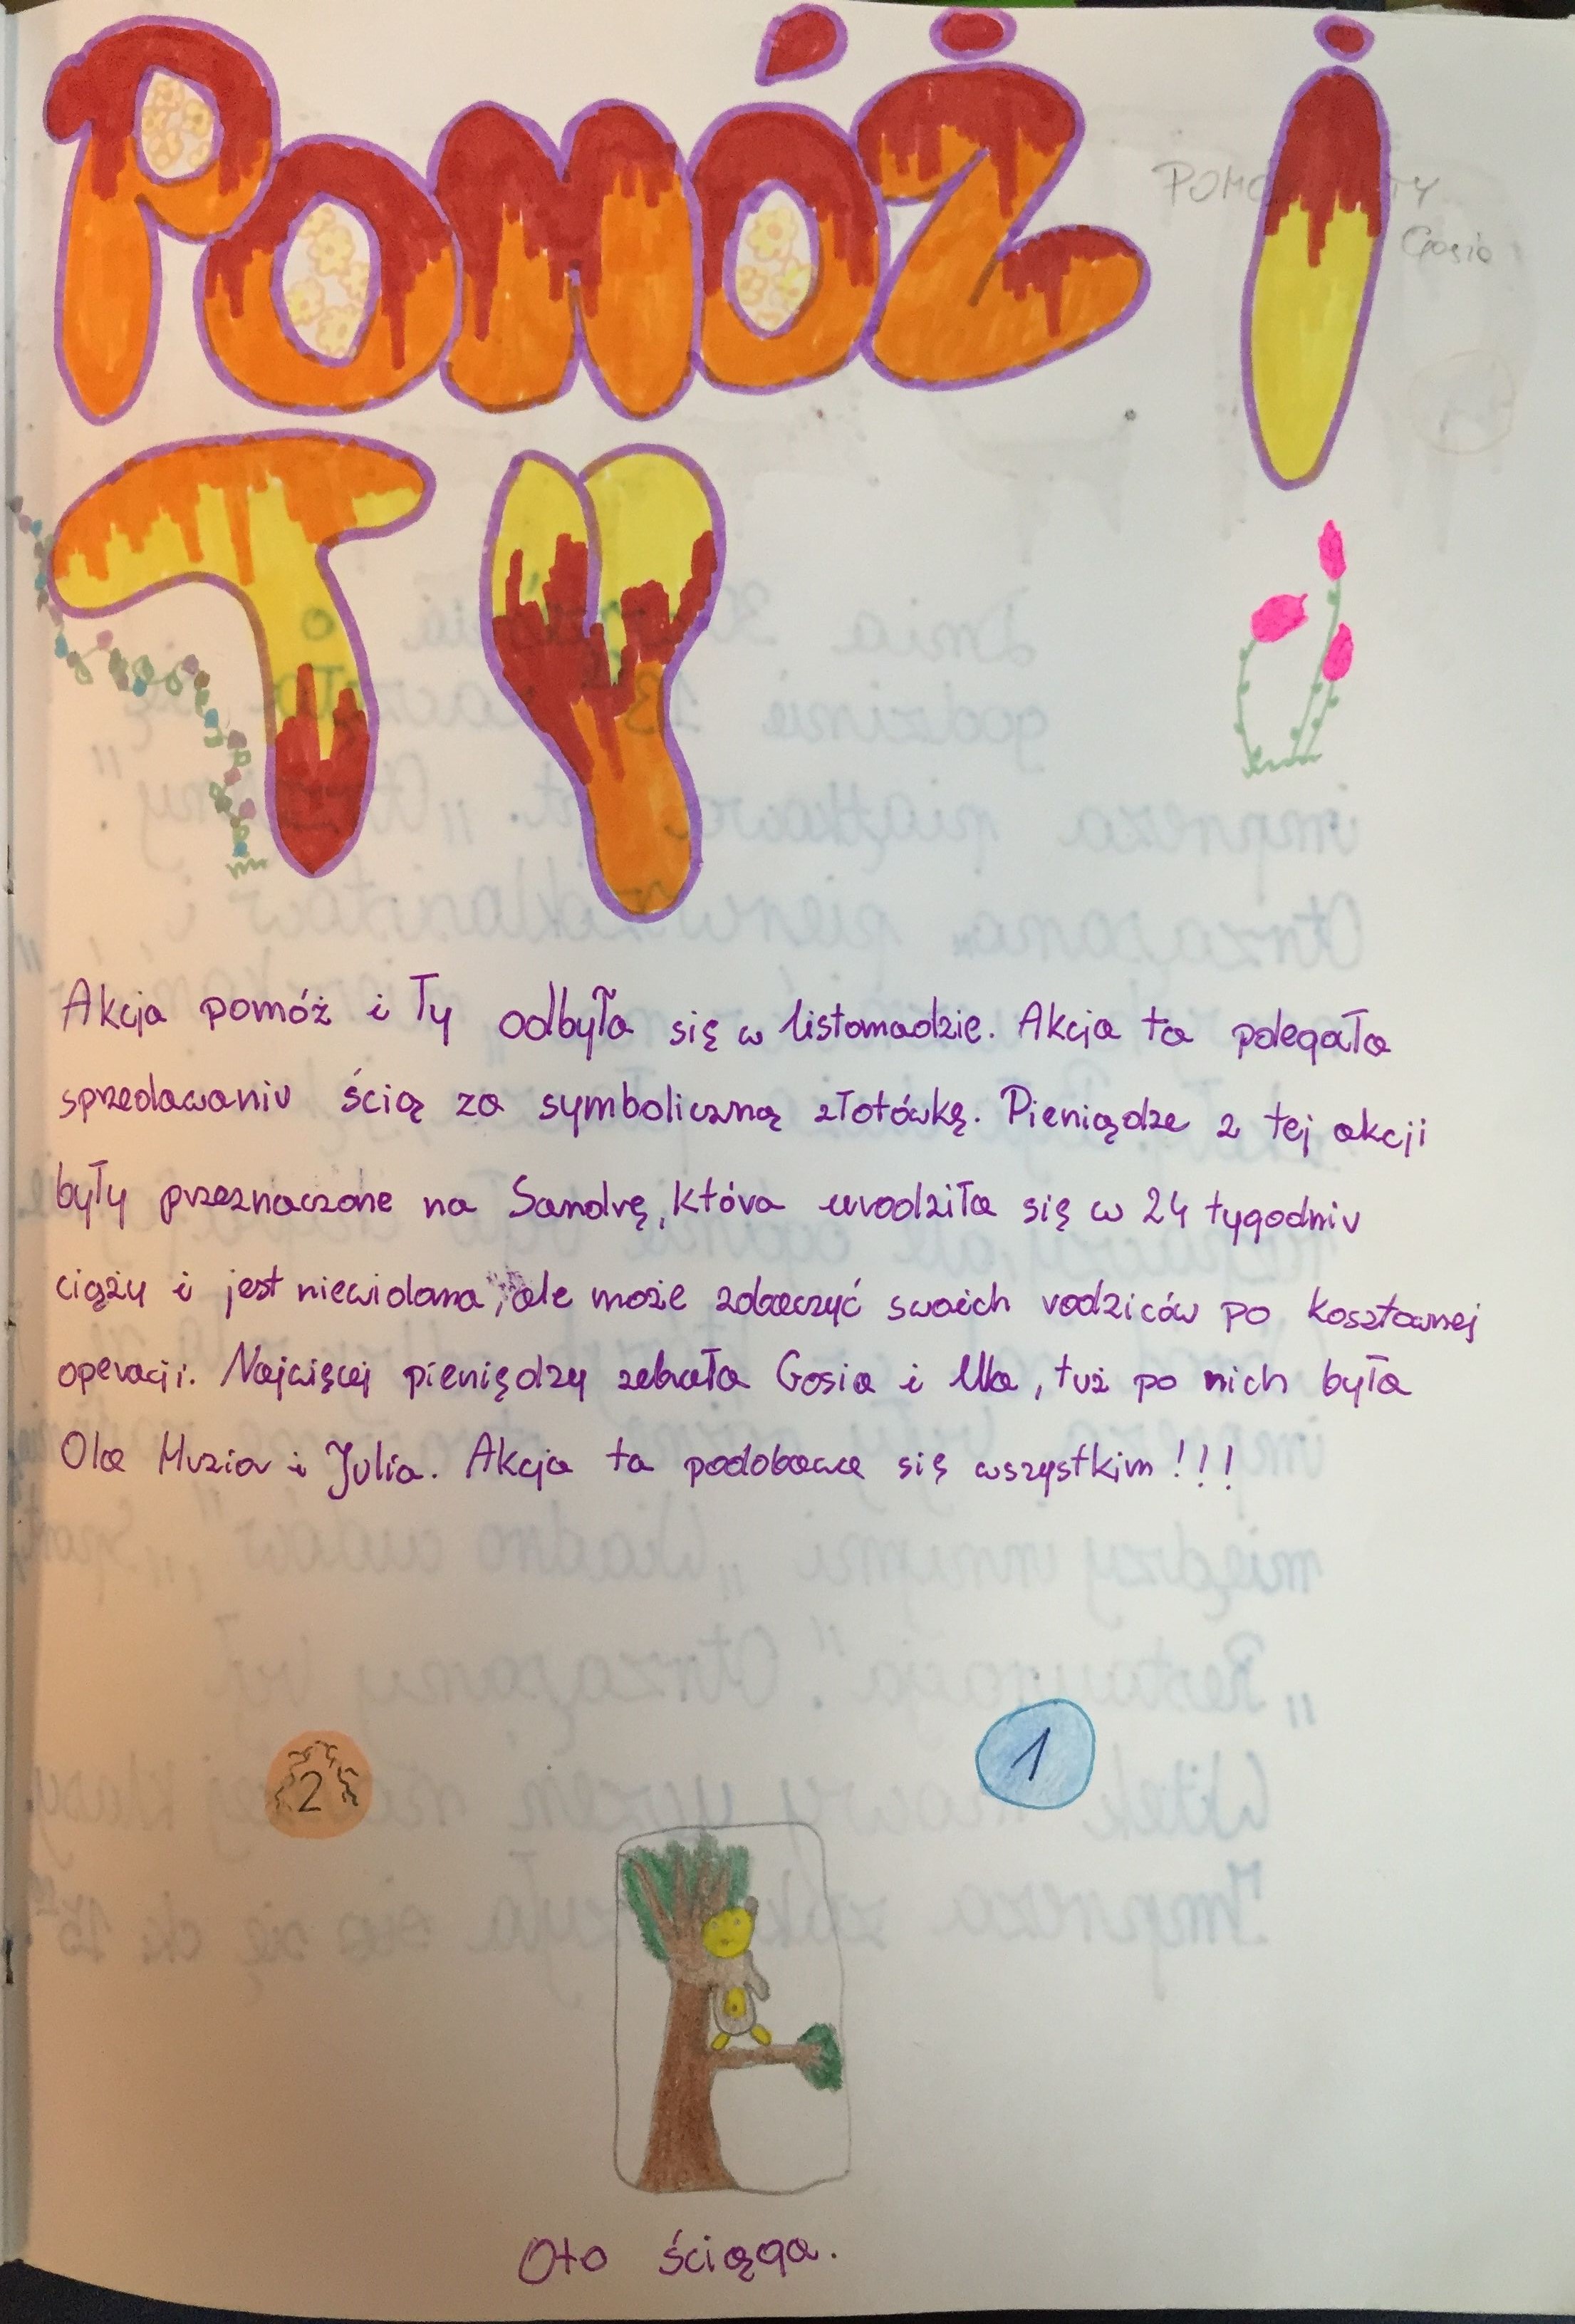 POMÓŻ i
TY
Akcja pomóż i Ty odbyła się w listomadzie. Akcja ta polegała
sprzedawaniu ścią za symboliczną złotówkę. Pieniądze z tej akcji
były przeznaczone na Sandrę, która urodziła się w 24 tygodniu
ciąży i jest niewidoma, ale może zobaczyć swoich rodziców po kosztownej
operacji. Najwięcej pieniędzy zebrała Gosia i Ula, tuż po nich była
Ola Muzia i Julia. Akcja ta podobała się wszystkim!!!
2 1
Oto ściąga.